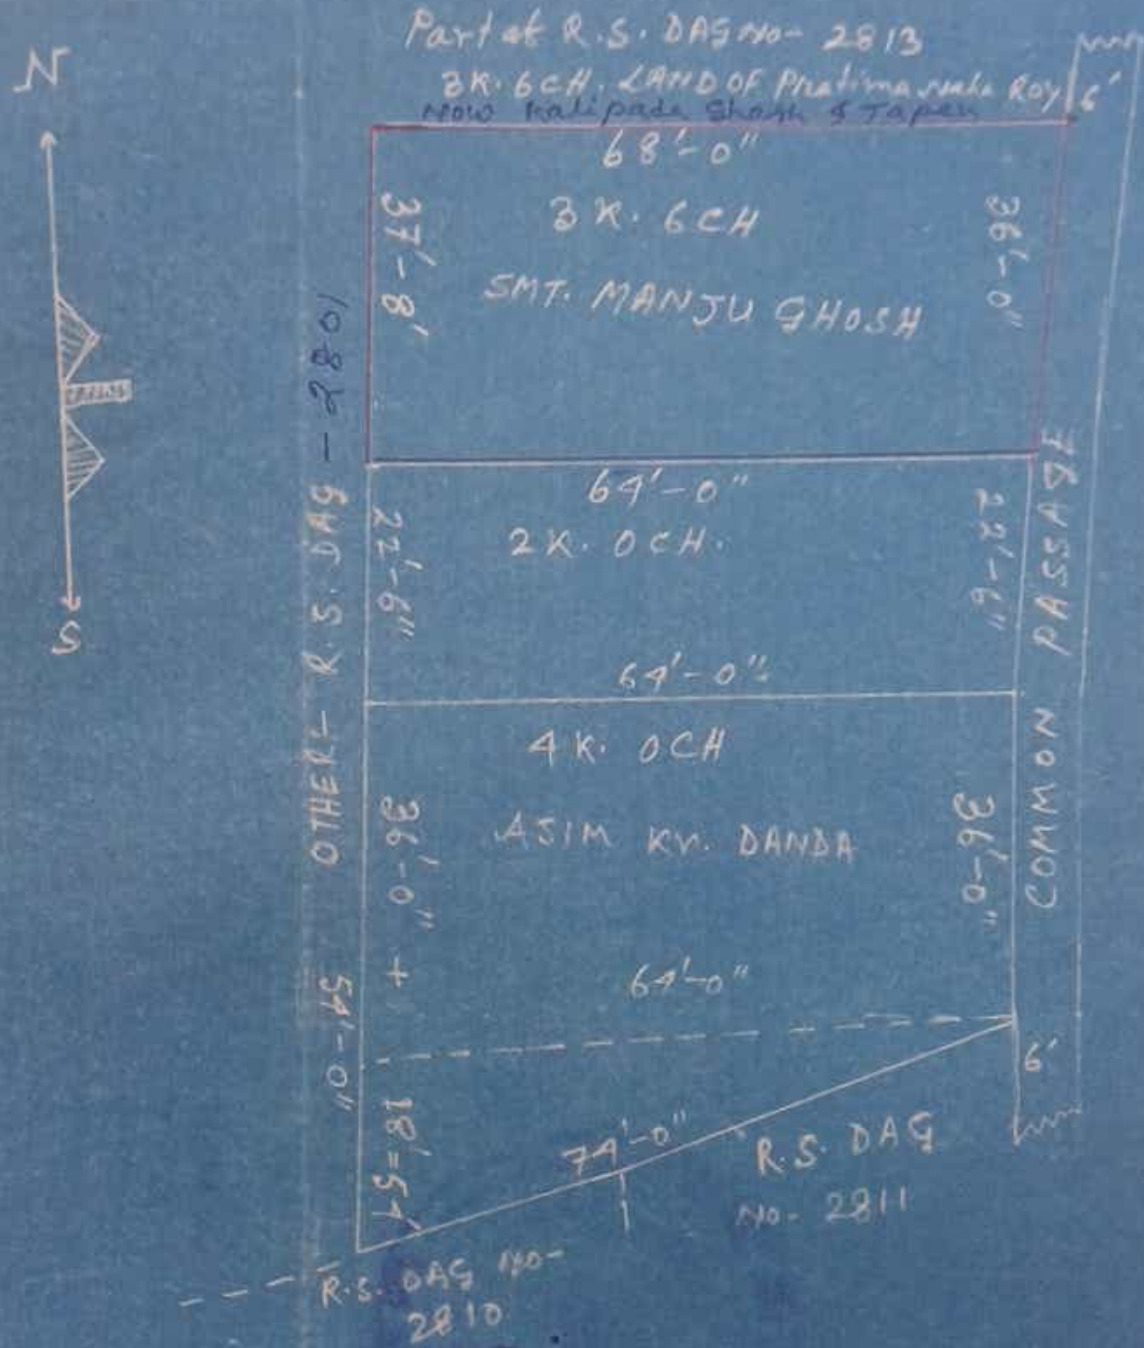 Part of R.S. DAG NO- 2813
3K. 6CH. LAND OF Pratima Roy
6'
Now Kalipada Ghosh & Tapan
N
68'-0"
37'-8'
3K. 6CH
36'-0"
SMT. MANJU GHOSH
OTHERS R.S. DAG - 2801
S
64'-0"
22'-6"
2K. 0CH.
22'-6"
COMMON PASSAGE
64'-0"
4K. 0CH
36'-0" + 18'=54'
ASIM KR. DANDA
36'-0"
64'-0"
54'-0"
6'
74'-0"
R.S. DAG
NO- 2811
R.S. DAG NO-
2810